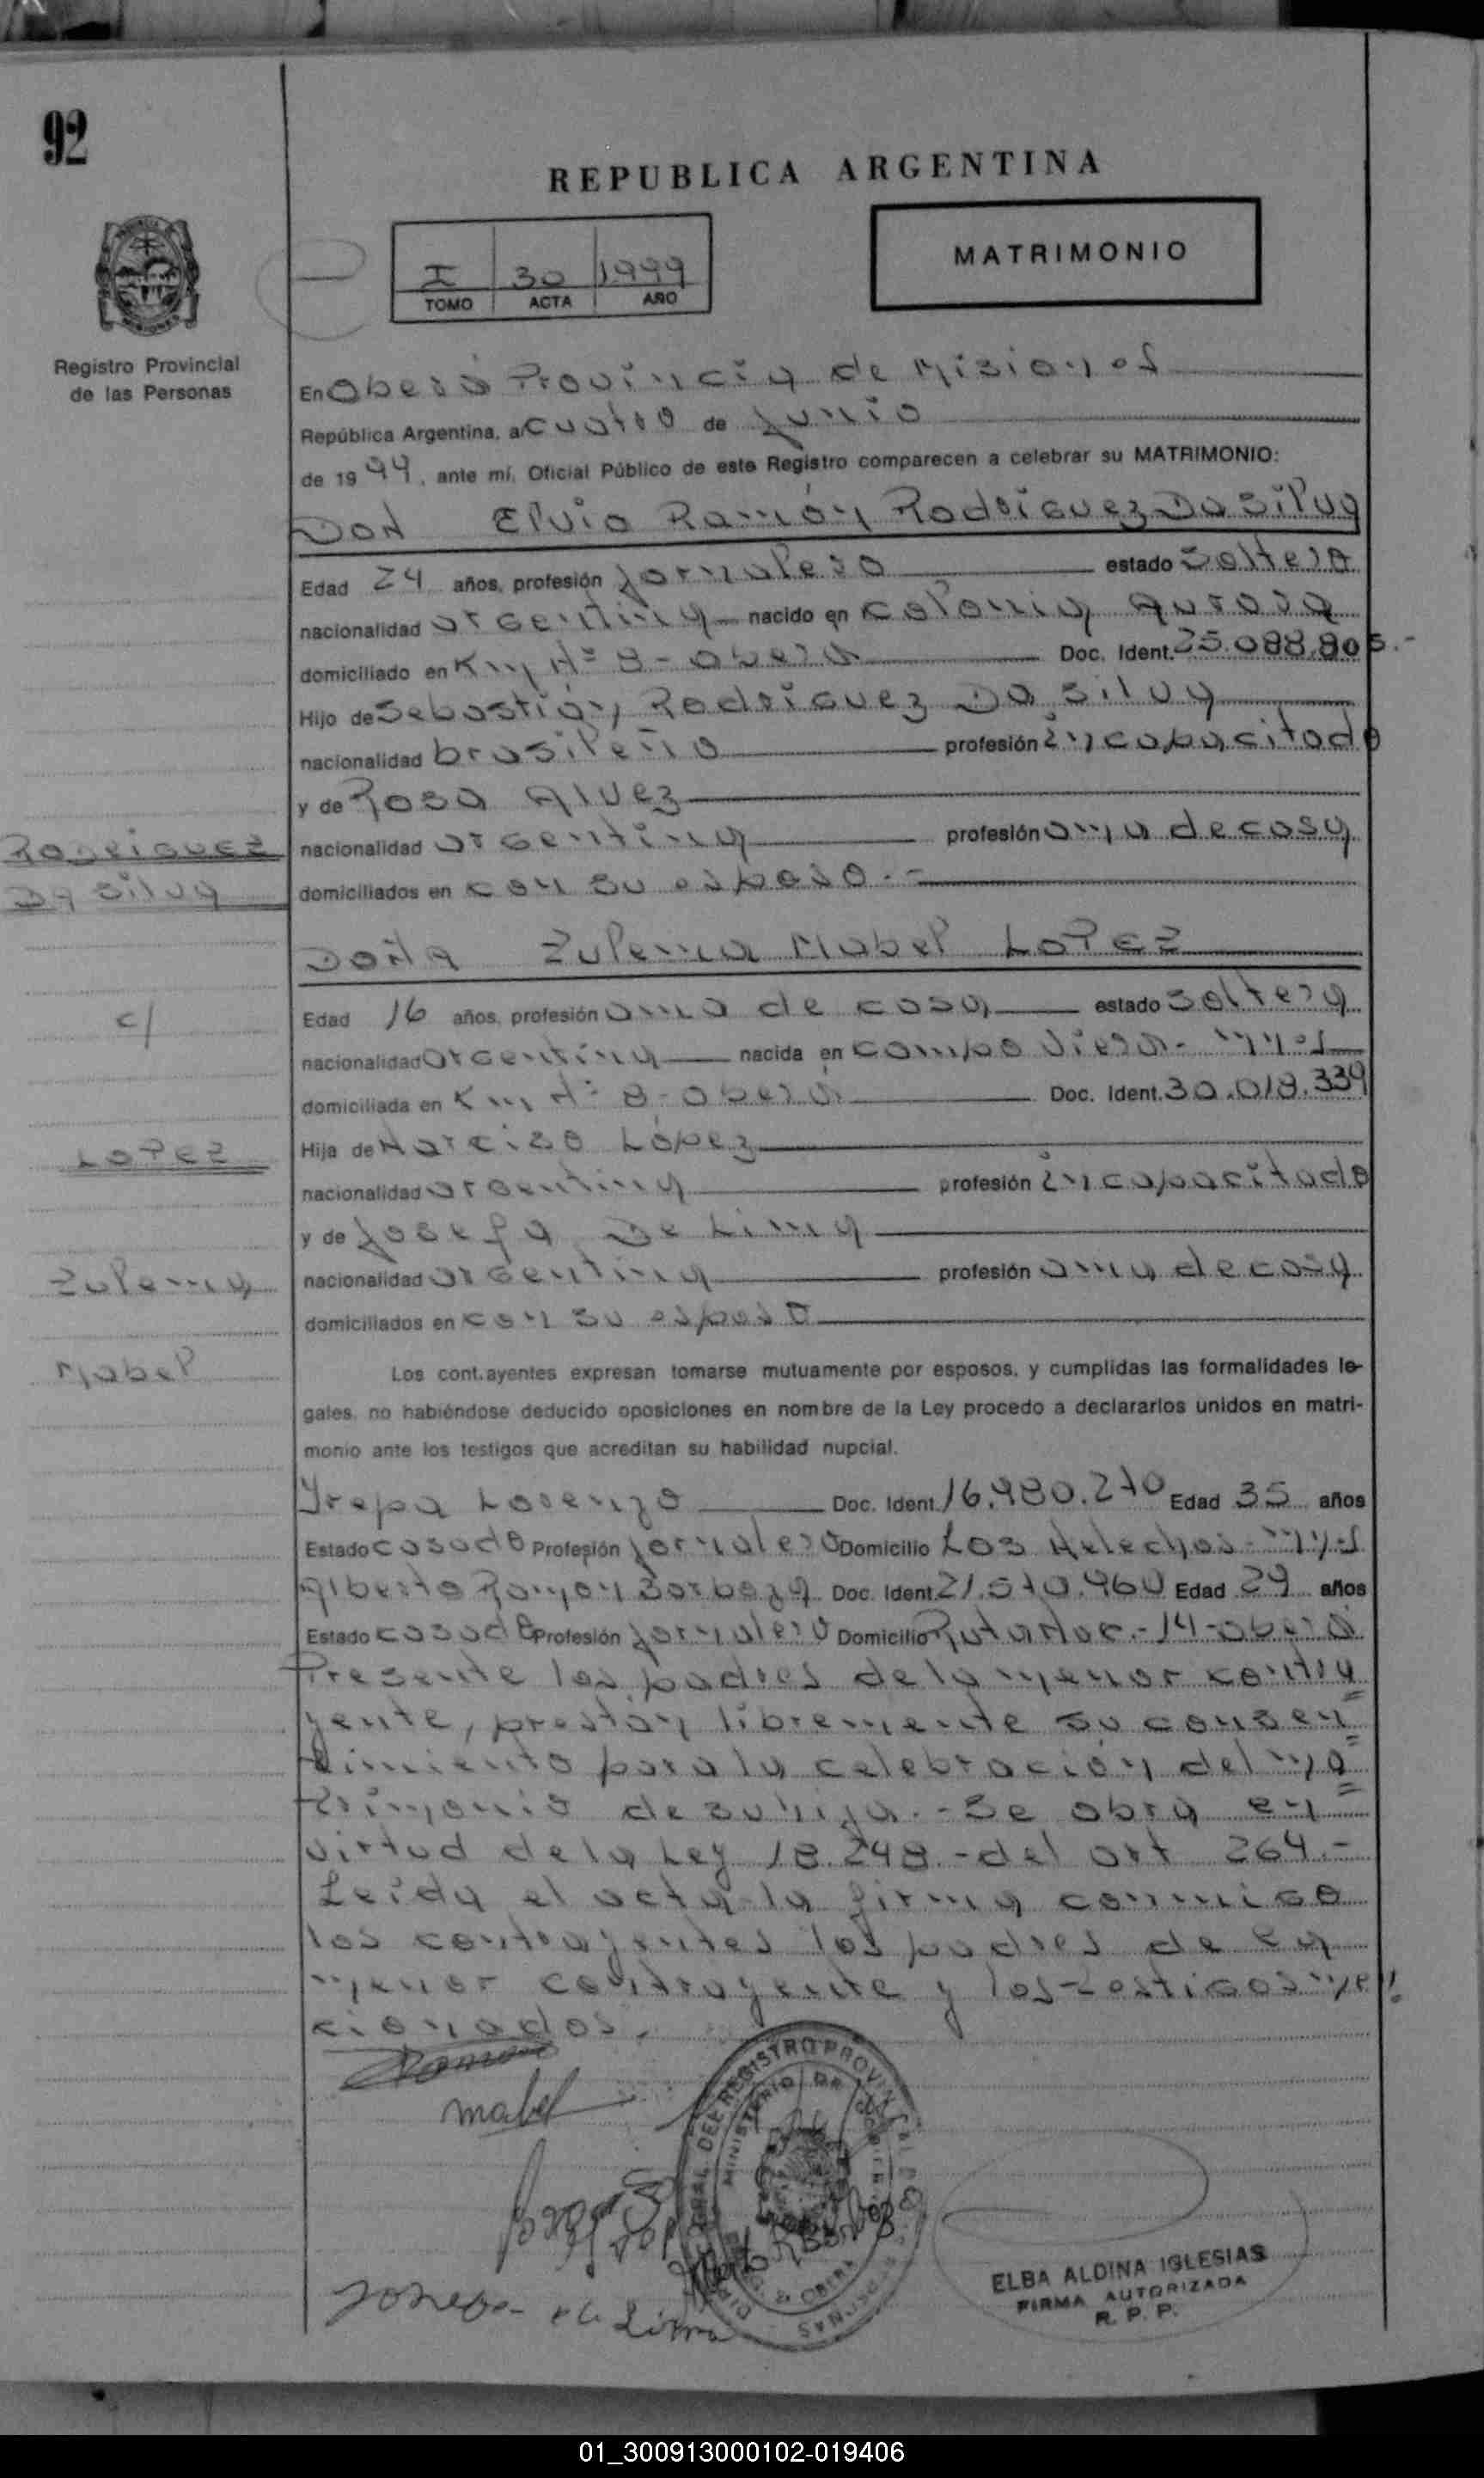 92
REPUBLICA ARGENTINA
MATRIMONIO
I 30 1999
TOMO ACTA AÑO
Registro Provincial
de las Personas
En Oberá Provincia de Misiones
República Argentina, a cuatro de junio
de 1999, ante mí, Oficial Público de este Registro comparecen a celebrar su MATRIMONIO:
DON Elvio Ramón Rodriguez Da Silva
Edad 24 años, profesión jornalero estado soltero
nacionalidad argentina nacido en colonia Aurora
domiciliado en Km Nº 8 - oberá Doc. Ident. 25.088.805.-
Hijo de Sebastián Rodriguez Da Silva
nacionalidad brasileño profesión incapacitado
y de Rosa Alvez
Rodriguez
nacionalidad argentina profesión ama de casa
Da Silva
domiciliados en con su esposo.-
DOÑA Zulema Mabel LOPEZ
Edad 16 años, profesión ama de casa estado soltera
c/
nacionalidad argentina nacida en campo Viera - mnes
domiciliada en Km Nº 8 - oberá Doc. Ident. 30.018.339
Hija de Narciso López
LOPEZ
nacionalidad argentina profesión incapacitado
y de Josefa De Lima
Zulema
nacionalidad argentina profesión ama de casa
domiciliados en con su esposo
Mabel
Los cont.ayentes expresan tomarse mutuamente por esposos, y cumplidas las formalidades le-
gales, no habiéndose deducido oposiciones en nombre de la Ley procedo a declararlos unidos en matri-
monio ante los testigos que acreditan su habilidad nupcial.
Lorenzo Doc. Ident. 16.980.270 Edad 35 años
Estado casado Profesión jornalero Domicilio Los Helechos - mnes
Alberto Ramon Barboza Doc. Ident. 21.570.960 Edad 29 años
Estado casado Profesión jornalero Domicilio Ruta Nac.- 14 - oberá
Presente los padres de la menor contra
yente, prestan libremente su consen
timiento para la celebración del ma
trimonio de su hija.- Se obra en
virtud de la Ley 18.248.- del art 264.-
Leida el acta la firma conmigo
los contrayentes los padres de la
menor contrayente y los testigos men
cionados.
Ramon
mabel
Josefa de Lima
ELBA ALDINA IGLESIAS
FIRMA AUTORIZADA
R. P. P.
01_300913000102-019406